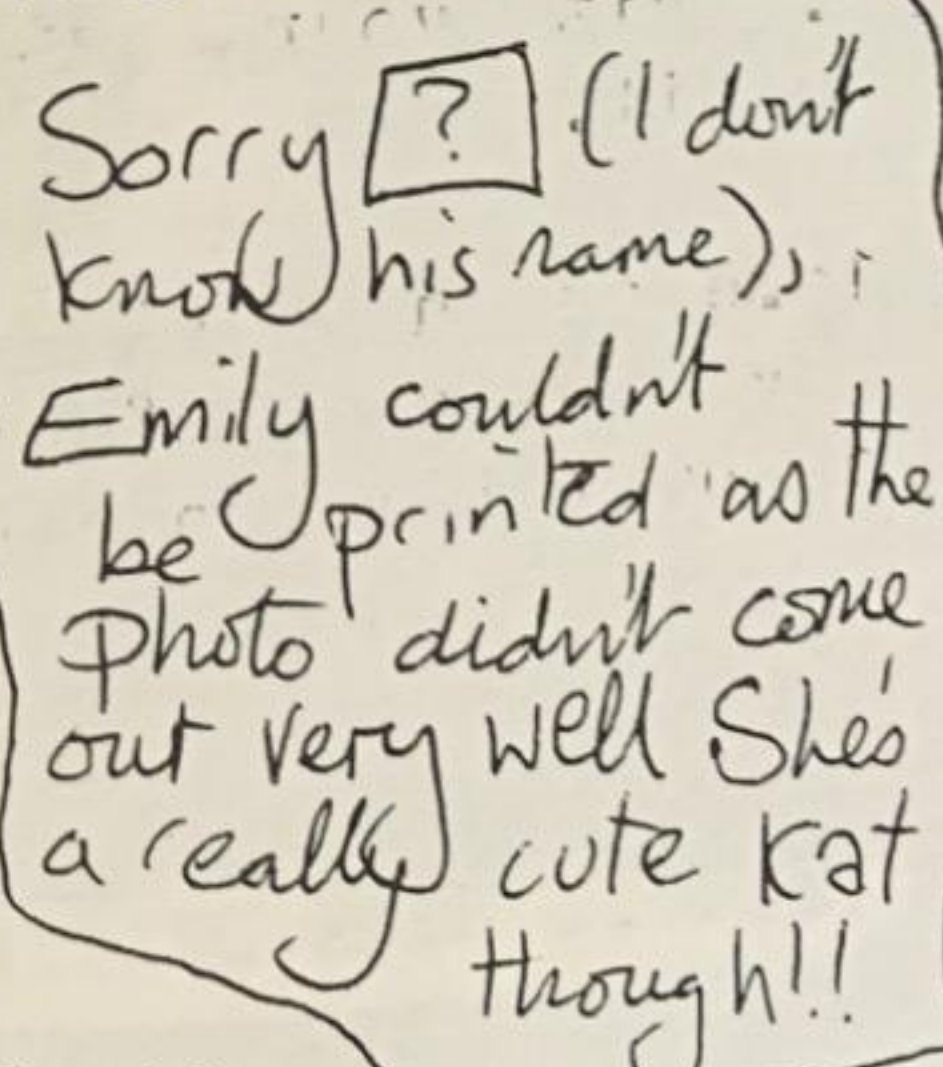 Sorry ? (I don't
know his name),
Emily couldn't
be printed as the
photo didn't come
out very well She's
a really cute Kat
though!!